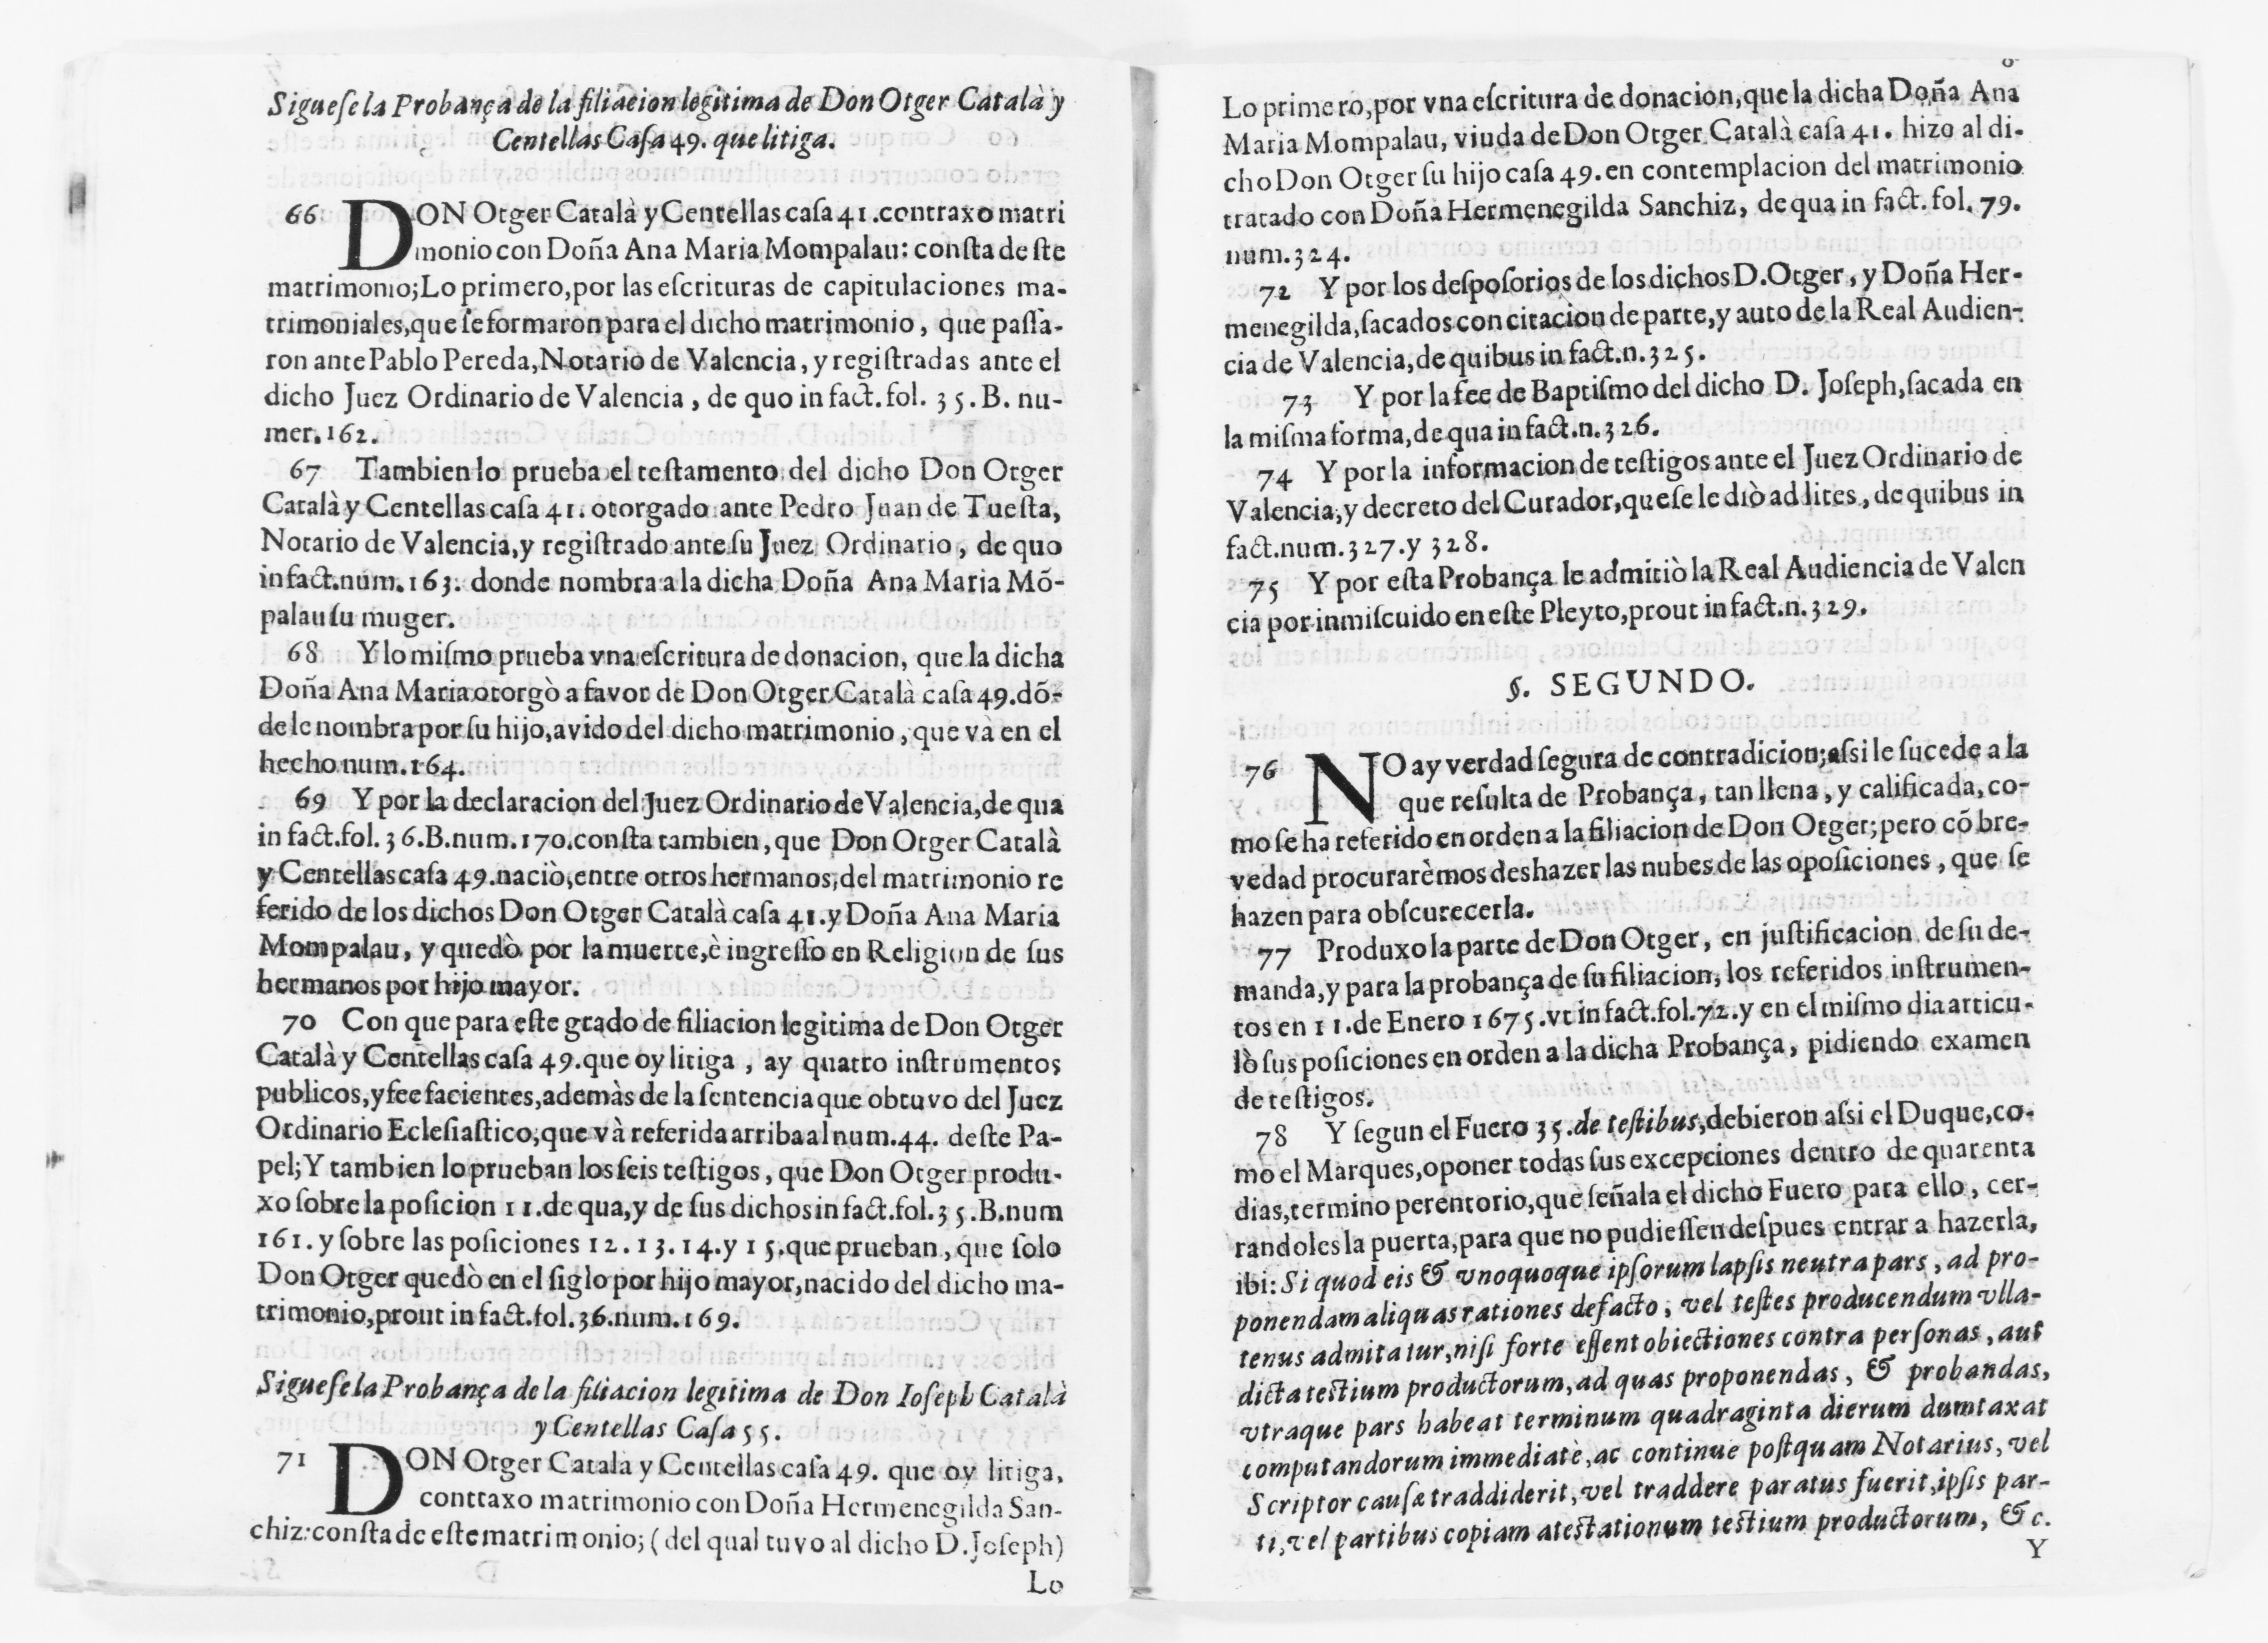 Sigueſe la Probança de la filiacion legitima de Don Otger Català y
Centellas Caſa 49. que litiga.
66 DON Otger Català y Centellas caſa 41. contraxo matri
monio con Doña Ana Maria Mompalau: conſta de ſte
matrimonio; Lo primero, por las eſcrituras de capitulaciones ma-
trimoniales, que ſe formaron para el dicho matrimonio, que paſſa-
ron ante Pablo Pereda, Notario de Valencia, y regiſtradas ante el
dicho Juez Ordinario de Valencia, de quo in fact. fol. 35. B. nu-
mer. 162.
67 Tambien lo prueba el teſtamento del dicho Don Otger
Català y Centellas caſa 41. otorgado ante Pedro Juan de Tueſta,
Notario de Valencia, y regiſtrado ante ſu Juez Ordinario, de quo
in fact. num. 163. donde nombra a la dicha Doña Ana Maria Mõ-
palau ſu muger.
68 Y lo miſmo prueba vna eſcritura de donacion, que la dicha
Doña Ana Maria otorgò a favor de Don Otger Català caſa 49. dõ-
de le nombra por ſu hijo, avido del dicho matrimonio, que và en el
hecho num. 164.
69 Y por la declaracion del Juez Ordinario de Valencia, de qua
in fact. fol. 36. B. num. 170. conſta tambien, que Don Otger Català
y Centellas caſa 49. naciò, entre otros hermanos, del matrimonio re
ferido de los dichos Don Otger Català caſa 41. y Doña Ana Maria
Mompalau, y quedò por la muerte, è ingreſſo en Religion de ſus
hermanos por hijo mayor.
70 Con que para eſte grado de filiacion legitima de Don Otger
Català y Centellas caſa 49. que oy litiga, ay quatro inſtrumentos
publicos, y fee facientes, ademàs de la ſentencia que obtuvo del Juez
Ordinario Ecleſiaſtico, que và referida arriba al num. 44. deſte Pa-
pel; Y tambien lo prueban los ſeis teſtigos, que Don Otger produ-
xo ſobre la poſicion 11. de qua, y de ſus dichos in fact. fol. 35. B. num
161. y ſobre las poſiciones 12. 13. 14. y 15. que prueban, que ſolo
Don Otger quedò en el ſiglo por hijo mayor, nacido del dicho ma-
trimonio, prout in fact. fol. 36. num. 169.
Sigueſe la Probança de la filiacion legitima de Don Ioſeph Català
y Centellas Caſa 55.
71 DON Otger Catala y Centellas caſa 49. que oy litiga,
contraxo matrimonio con Doña Hermenegilda San-
chiz: conſta de eſte matrimonio; (del qual tuvo al dicho D. Joſeph)
Lo
Lo primero, por vna eſcritura de donacion, que la dicha Doña Ana
Maria Mompalau, viuda de Don Otger Català caſa 41. hizo al di-
cho Don Otger ſu hijo caſa 49. en contemplacion del matrimonio
tratado con Doña Hermenegilda Sanchiz, de qua in fact. fol. 79.
num. 324.
72 Y por los deſpoſorios de los dichos D. Otger, y Doña Her-
menegilda, ſacados con citacion de parte, y auto de la Real Audien-
cia de Valencia, de quibus in fact. n. 325.
73 Y por la fee de Baptiſmo del dicho D. Joſeph, ſacada en
la miſma forma, de qua in fact. n. 326.
74 Y por la informacion de teſtigos ante el Juez Ordinario de
Valencia, y decreto del Curador, que ſe le diò ad lites, de quibus in
fact. num. 327. y 328.
75 Y por eſta Probança le admitiò la Real Audiencia de Valen
cia por inmiſcuido en eſte Pleyto, prout in fact. n. 329.
§. SEGUNDO.
76 NO ay verdad ſegura de contradicion; aſsi le ſucede a la
que reſulta de Probança, tan llena, y calificada, co-
mo ſe ha referido en orden a la filiacion de Don Otger; pero cõ bre-
vedad procurarèmos deshazer las nubes de las opoſiciones, que ſe
hazen para obſcurecerla.
77 Produxo la parte de Don Otger, en juſtificacion de ſu de-
manda, y para la probança de ſu filiacion, los referidos inſtrumen-
tos en 11. de Enero 1675. vt in fact. fol. 72. y en el miſmo dia articu-
lò ſus poſiciones en orden a la dicha Probança, pidiendo examen
de teſtigos.
78 Y ſegun el Fuero 35. de teſtibus, debieron aſsi el Duque, co-
mo el Marques, oponer todas ſus excepciones dentro de quarenta
dias, termino perentorio, que ſeñala el dicho Fuero para ello, cer-
randoles la puerta, para que no pudieſſen deſpues entrar a hazerla,
ibi: Si quod eis & vnoquoque ipſorum lapſis neutra pars, ad pro-
ponendam aliquas rationes defacto, vel teſtes producendum vlla-
tenus admitatur, niſi forte eſſent obiectiones contra perſonas, aut
dicta teſtium productorum, ad quas proponendas, & probandas,
vtraque pars habeat terminum quadraginta dierum dumtaxat
computandorum immediatè, ac continue poſtquam Notarius, vel
Scriptor cauſæ traddiderit, vel traddere paratus fuerit, ipſis par-
ti, vel partibus copiam ateſtationum teſtium productorum, &c.
Y